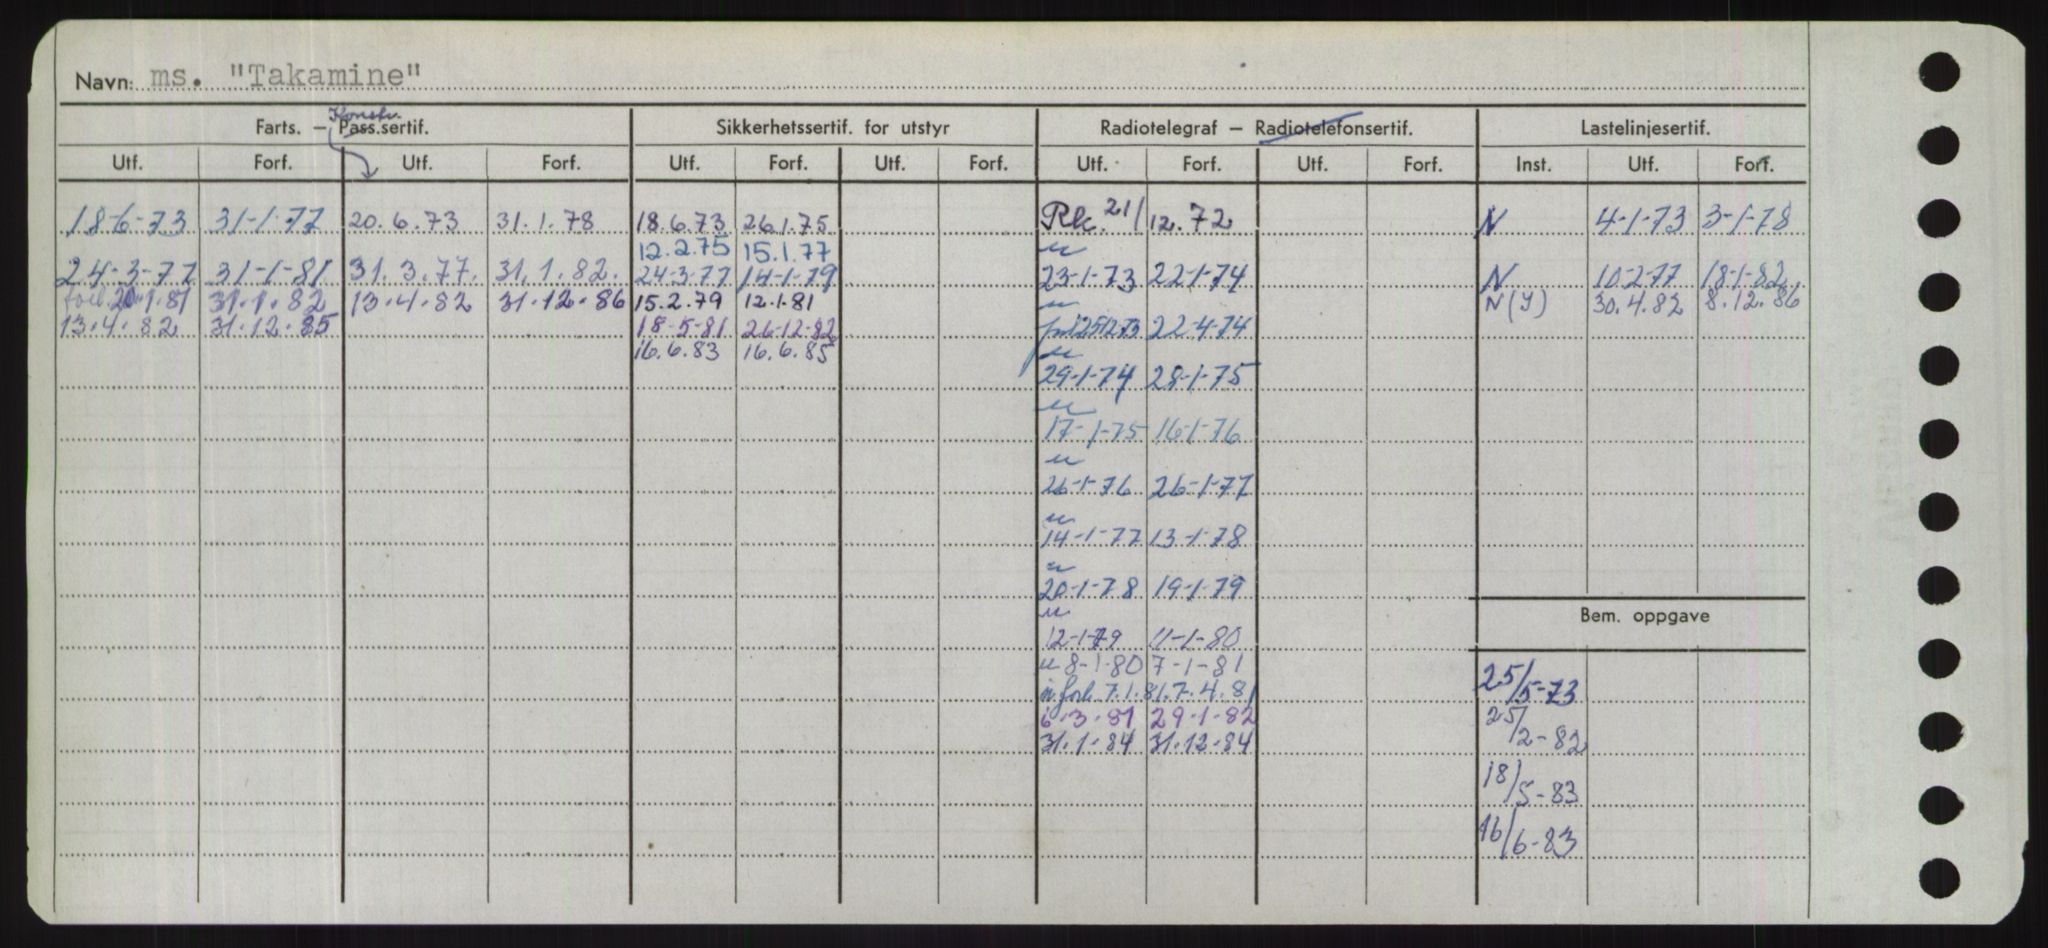 Navn: ms. "Takamine"
Konstr.
Farts. – Pass.sertif. Sikkerhetssertif. for utstyr Radiotelegraf – Radiotelefonsertif. Lastelinjesertif.
Utf. Forf. Utf. Forf. Utf. Forf. Utf. Forf. Utf. Forf. Utf. Forf. Inst. Utf. Forf.
18-6-73 31-1-77 20.6.73 31.1.78 18.6.73 26.1.75 Rk. 21/12.72 N 4-1-73 3-1-78
12.2.75 15.1.77 u
24-3-77 31-1-81 31.3.77. 31.1.82. 24-3-77 14-1-79 23-1-73 22-1-74 N 10-2-77 18-1-82
forl. 20.1.81 31.1.82 13.4.82 31.12.86 15.2.79 12.1.81 u N(Y) 30.4.82 8.12.86
13.4.82 31.12.85 18-5-81 26-12-82 22-4-74
16.6.83 16.6.85 u
29-1-74 28-1-75
u
17-1-75 16-1-76
u
26-1-76 26-1-77
u
14-1-77 13-1-78
u
20-1-78 19-1-79
u
Bem. oppgave
12-1-79 11-1-80
u 8-1-80 7-1-81
u forl. 7.1.81. 7.4.81 25/5-73
6.3.81 29.1.82 25/2-82
31.1.84 31.12.84
18/5-83
16/6-83